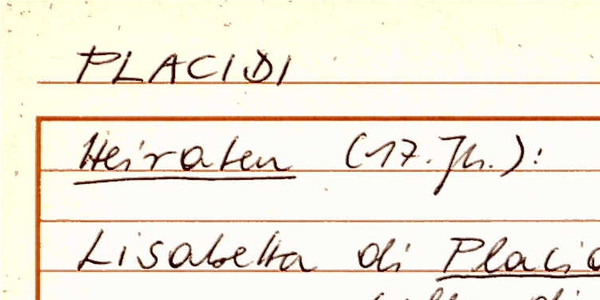 PLACIDI
Heiraten (17. Jh.):
Lisabetta di